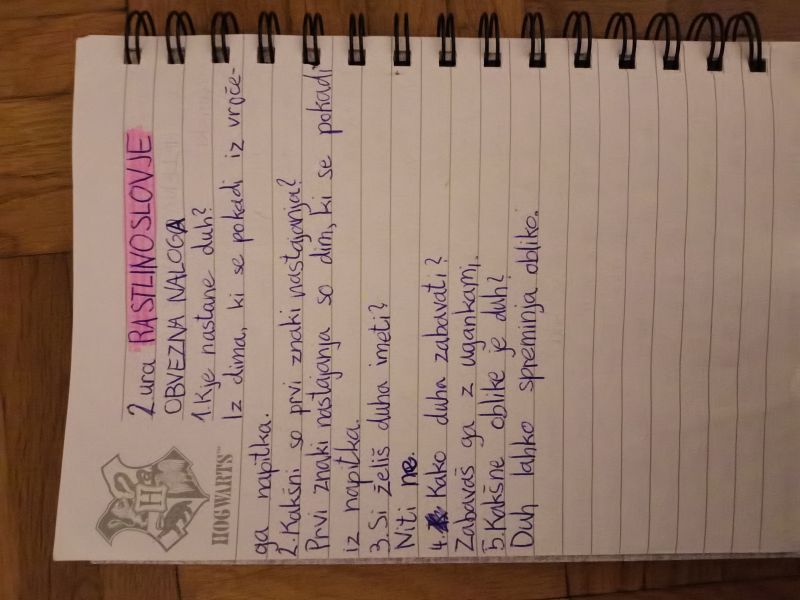 HOGWARTS™
H
2 ura RASTLINOSLOVJE
OBVEZNA NALOGA
1. Kje nastane duh?
Iz dima, ki se pokadi iz vroče-
ga napitka.
2. Kakšni so prvi znaki nastajanja?
Prvi znaki nastajanja so dim, ki se pokadi
iz napitka.
3. Si želiš duha imeti?
Niti ne.
4. Kako duha zabavati?
Zabavaš ga z ugankami.
5. Kakšne oblike je duh?
Duh lahko spreminja obliko.